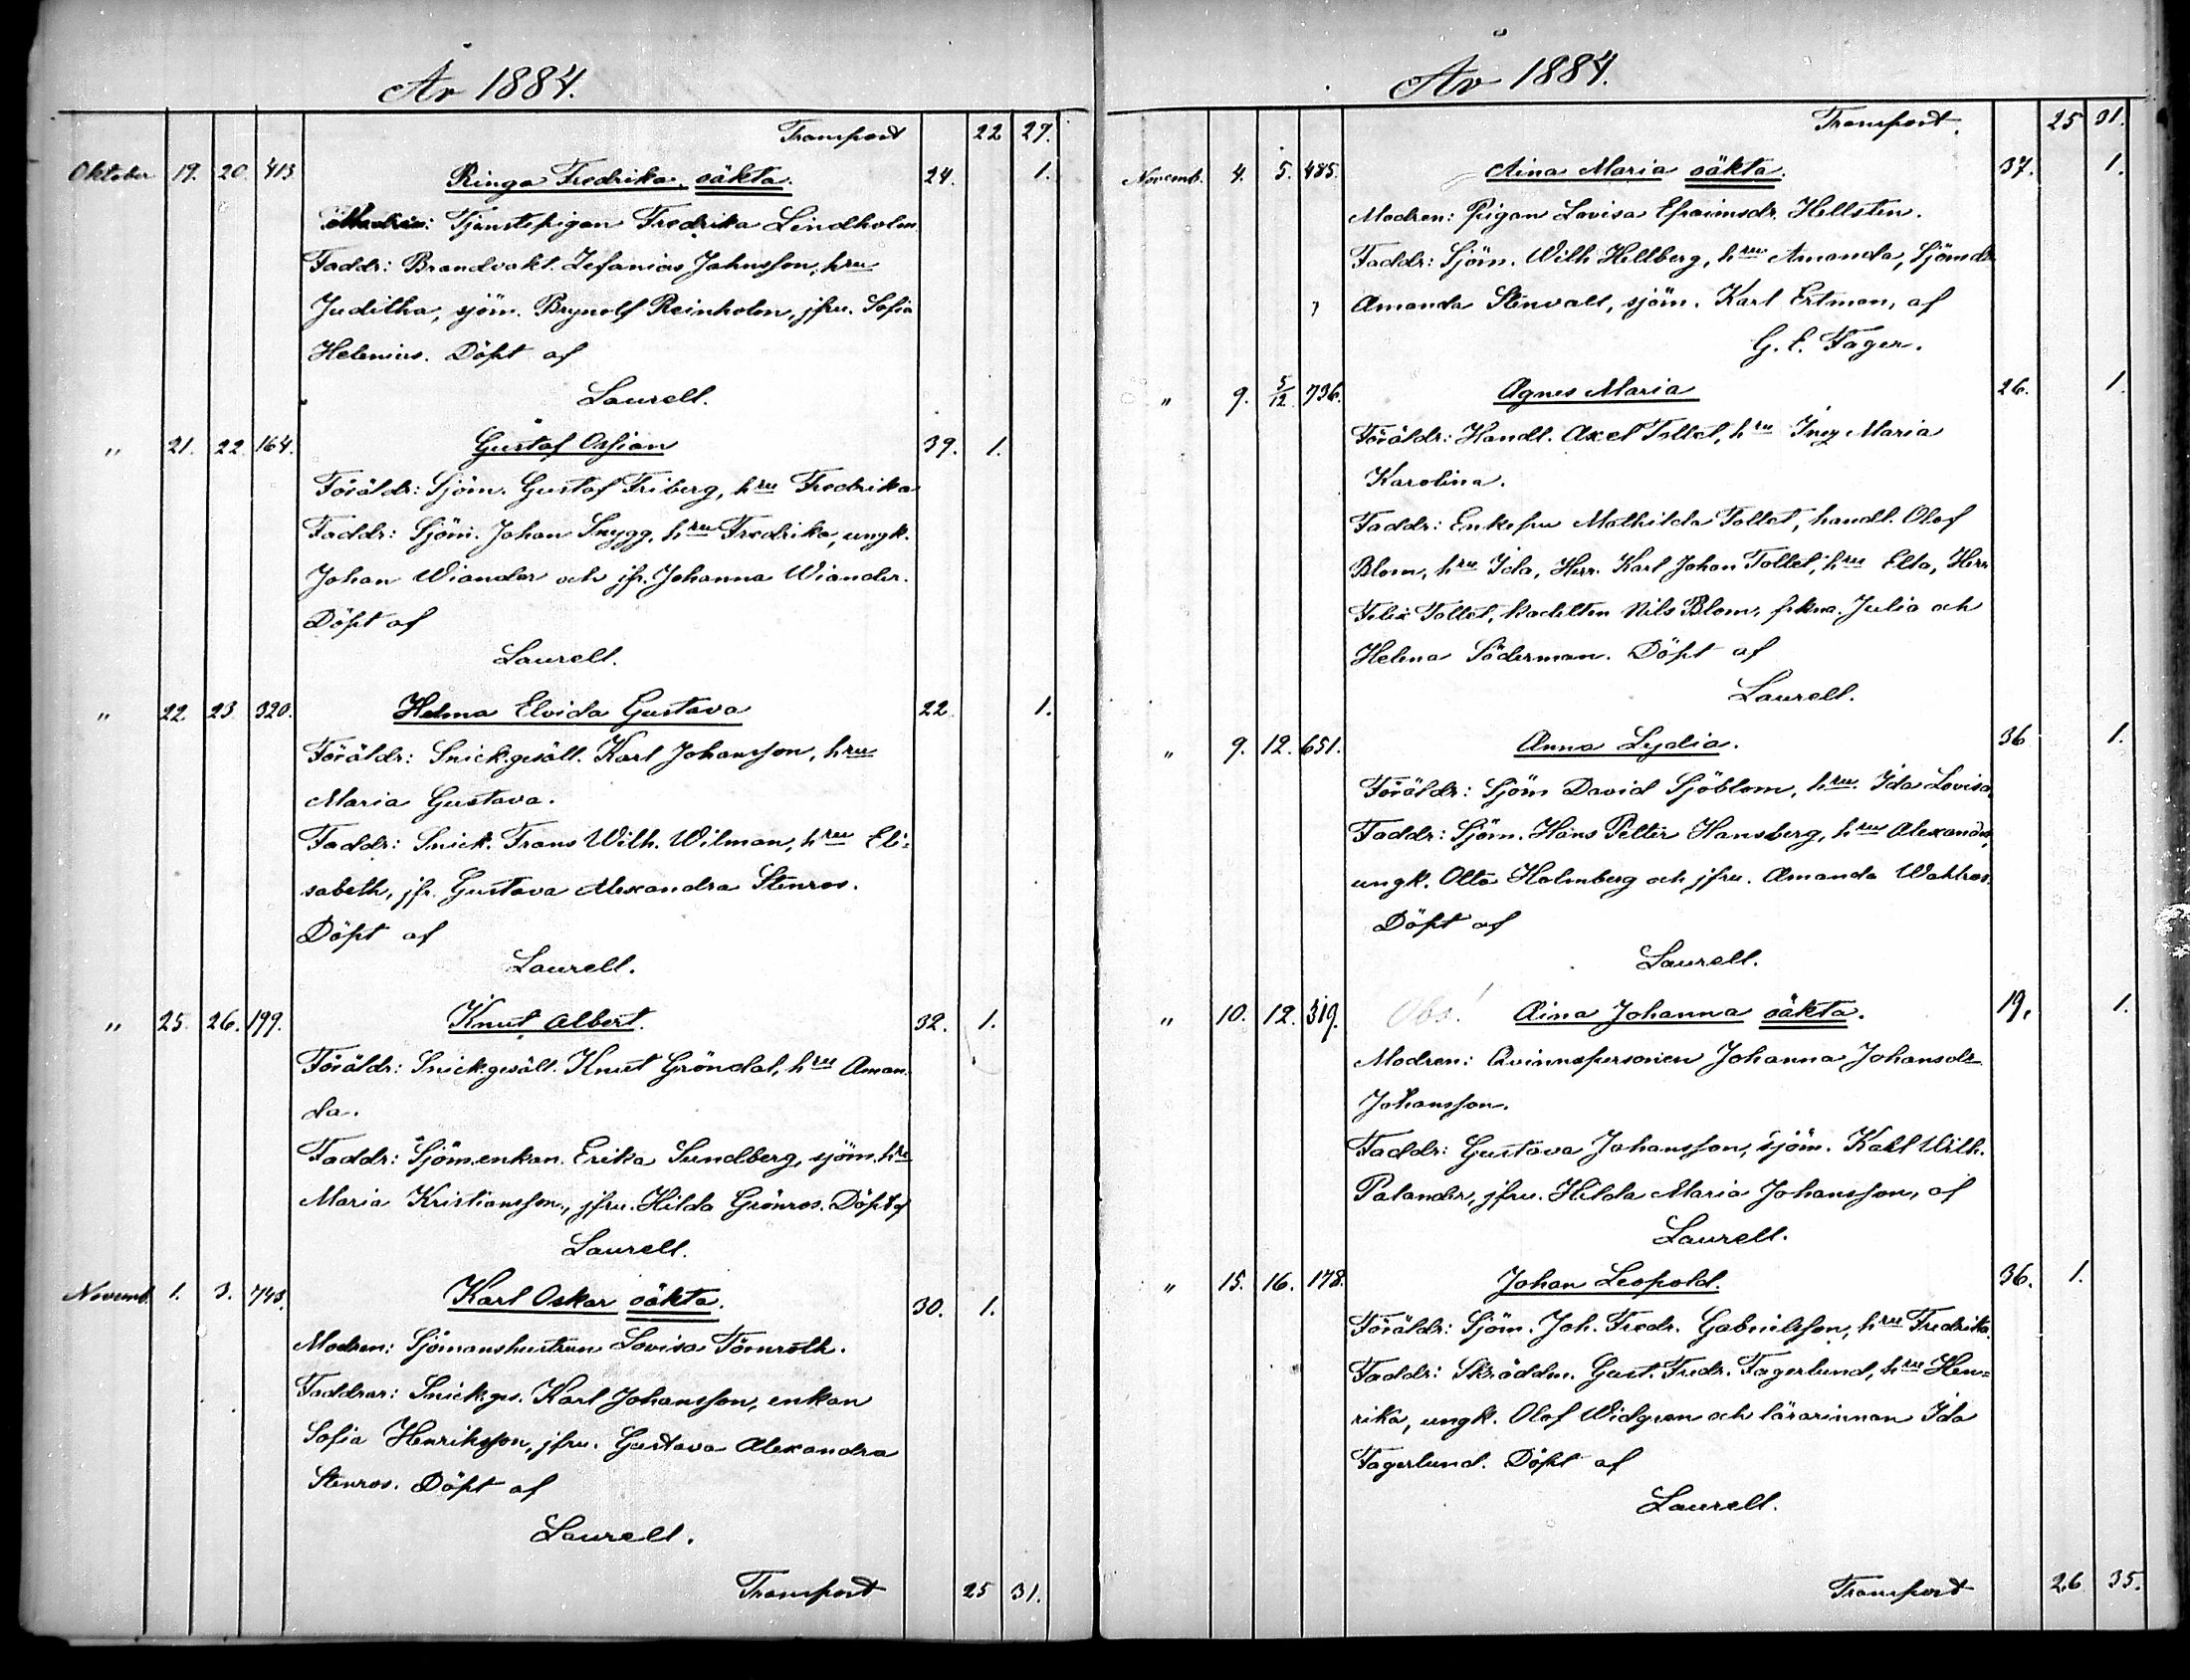 År 1884.
Transport 22 29.
Oktober 19. 20. 413 Ringa Fredrika oäkta. 24. 1.
Modren: Tjenstepigan Fredrika Lindholm
Faddr: Brandvakt. Zefanias Johnsson, hru
Juditha, sjöm. Brynolf Reinholm, jfru. Sofia
Helenius. Döpt af
Laurell.
" 21. 22. 164. Gustaf Ossian 39. 1.
Föräldr: Sjöm. Gustaf Friberg, hru Fredrika
Faddr: Sjöm. Johan Snygg, hru Fredrika, ungk.
Johan Wiander och jfr. Johanna Wiander.
Döpt af
Laurell.
" 22. 23 320. Helma Elvida Gustava 22. 1.
Föräldr: Snick.gesäll. Karl Johansson, hru
Maria Gustava.
Faddr: Snick. Frans Wilh. Wilman, hru Eli-
sabeth, jfr. Gustava Alexandra Stenros.
Döpt af
Laurell.
" 25. 26. 199. Knut Albert. 32. 1.
Föräldr: Snick.gesäll. Knut Gröndal, hru Aman-
da.
Faddr: Sjöm.enkan. Erika Sundberg, sjöm. hru
Maria Kristiansson, jfru. Hilda Grönros. Döpt af
Laurell.
Novemb. 1. 3. 743. Karl Oskar oäkta. 30. 1.
Modren: Sjömanshustrun Lovisa Törnroth.
Faddrar: Snick.ges. Karl Johansson, enkan
Sofia Henriksson, jfru. Gustava Alexandra
Stenros. Döpt af
Laurell.
Transport 25 31.
År 1884.
Transport. 25 31.
Novemb. 4. 5. 485. Aina Maria oäkta. 37. 1.
Modren: Pigan Lovisa Efraimsdr. Hellsten.
Faddr: Sjöm. Wilh Hellberg, hru Amanda, Sjömdr
Amanda Stenvall, sjöm. Karl Ertman, af
G. E. Fager.
" 9. 5/12 736. Agnes Maria 26. 1.
Föräldr: Handl. Axel Tollet, hru Inez Maria
Karolina.
Faddr: Enkefru Mathilda Tollet, handl. Olof
Blom, hru Ida, Herr. Karl Johan Tollet, hru Elta, Herr
Felix Tollet, kadetten Nils Blom, frkna. Julia och
Helena Söderman. Döpt af
Laurell.
" 9. 12. 651. Anna Lydia. 36 1.
Föräldr: Sjöm David Sjöblom, hru. Ida Lovisa.
Faddr: Sjöm. Hans Petter Hansberg, hru Alexandra,
ungk. Otto Holmberg och jfru. Amanda Wahlros.
Döpt af
Laurell.
" 10. 12. 319. Obs! Aina Johanna oäkta. 19. 1.
Modren: Qvinnspersonen Johanna Johansdr
Johansson.
Faddr: Gustava Johansson, sjöm. Karl Wilh.
Palander, jfru. Hilda Maria Johansson, af
Laurell.
" 15. 16. 178. Johan Leopold. 36. 1.
Föräldr: Sjöm. Joh. Fredr. Gabrielsson, hru Fredrika.
Faddr: Skrädden. Gust. Fredr. Fagerlund, hru Hen-
rika, ungk. Olof Widgren och lärarinnan Ida
Fagerlund. Döpt af
Laurell.
Transport 26 35.